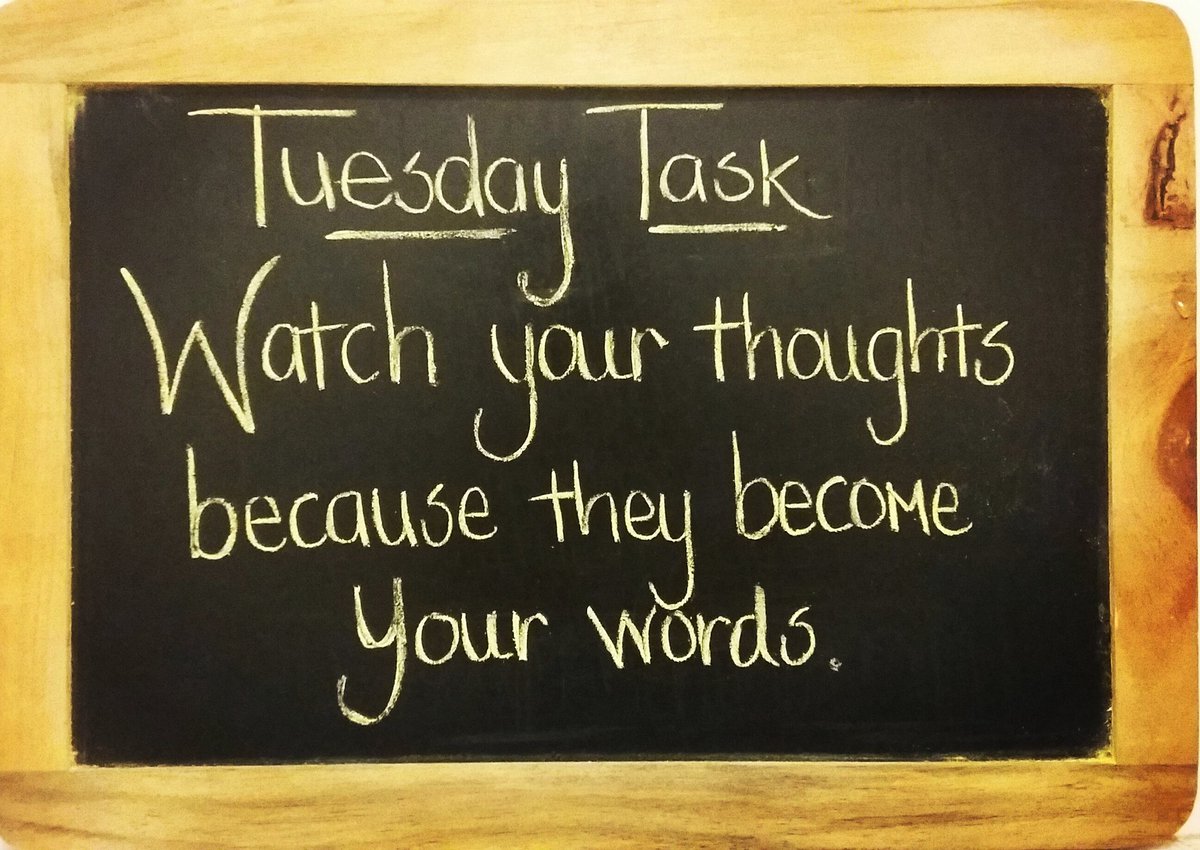 Tuesday Task
Watch your thoughts
because they become
your words.